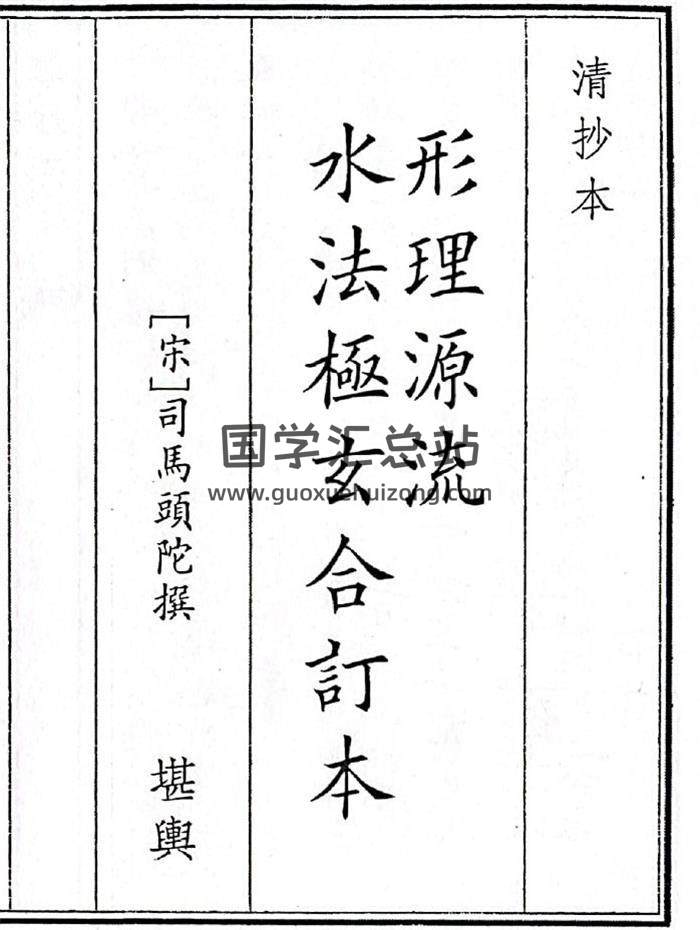 清抄本
形理源流
水法極玄合訂本
[宋]司馬頭陀撰
堪輿
国学汇总站
www.guoxuehuizong.com